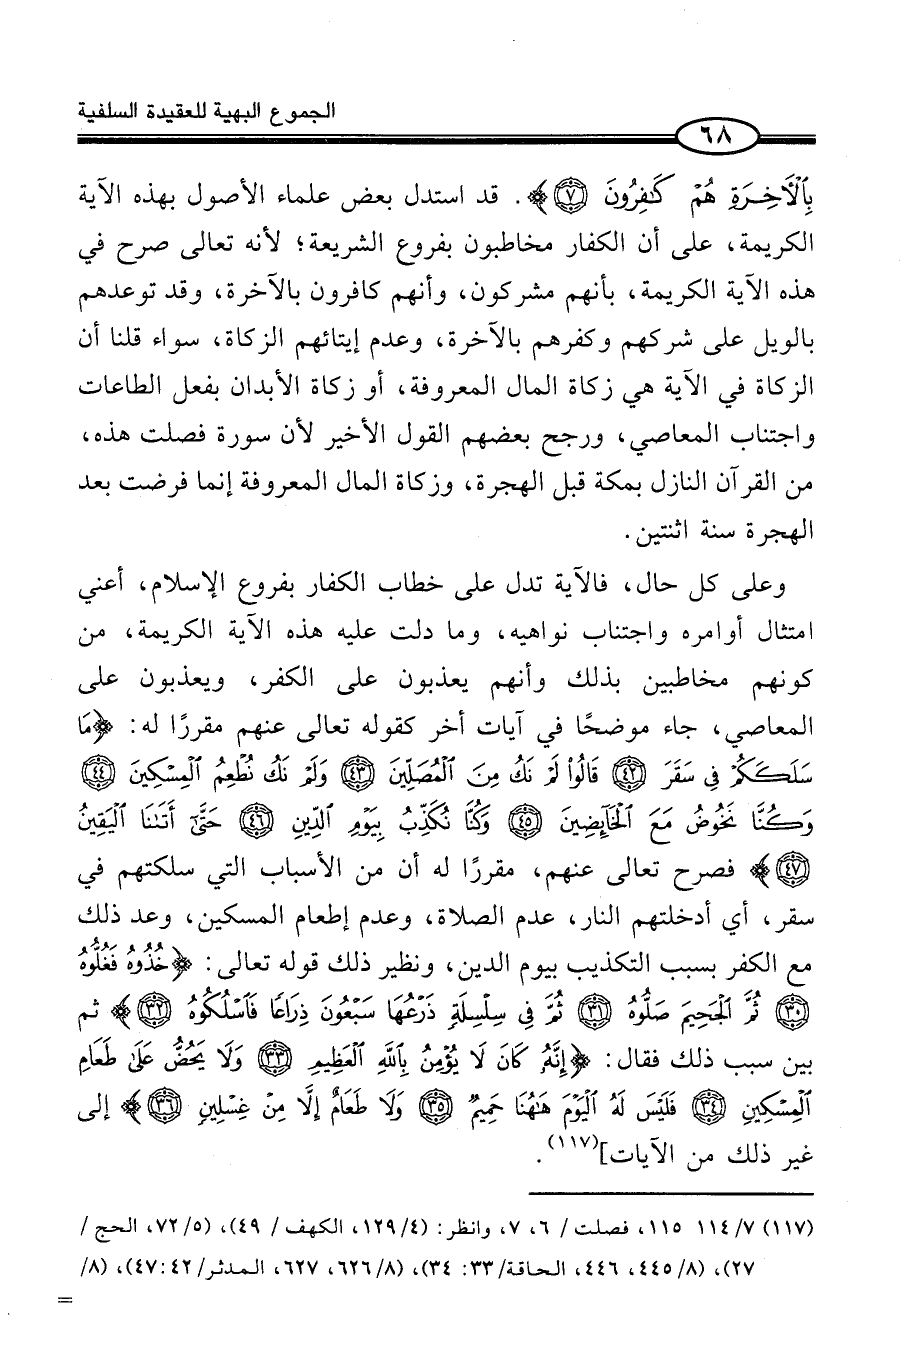 الجموع البهية للعقيدة السلفية
٦٨
بِٱلۡأٓخِرَةِ هُمۡ كَٰفِرُونَ ٧﴾. قد استدل بعض علماء الأصول بهذه الآية
الكريمة، على أن الكفار مخاطبون بفروع الشريعة؛ لأنه تعالى صرح في
هذه الآية الكريمة، بأنهم مشركون، وأنهم كافرون بالآخرة، وقد توعدهم
بالويل على شركهم وكفرهم بالآخرة، وعدم إيتائهم الزكاة، سواء قلنا أن
الزكاة في الآية هي زكاة المال المعروفة، أو زكاة الأبدان بفعل الطاعات
واجتناب المعاصي، ورجح بعضهم القول الأخير لأن سورة فصلت هذه،
من القرآن النازل بمكة قبل الهجرة، وزكاة المال المعروفة إنما فرضت بعد
الهجرة سنة اثنتين.
وعلى كل حال، فالآية تدل على خطاب الكفار بفروع الإسلام، أعني
امتثال أوامره واجتناب نواهيه، وما دلت عليه هذه الآية الكريمة، من
كونهم مخاطبين بذلك وأنهم يعذبون على الكفر، ويعذبون على
المعاصي، جاء موضحًا في آيات أخر كقوله تعالى عنهم مقررًا له: ﴿مَا
سَلَكَكُمۡ فِي سَقَرَ ٤٢ قَالُواْ لَمۡ نَكُ مِنَ ٱلۡمُصَلِّينَ ٤٣ وَلَمۡ نَكُ نُطۡعِمُ ٱلۡمِسۡكِينَ ٤٤
وَكُنَّا نَخُوضُ مَعَ ٱلۡخَآئِضِينَ ٤٥ وَكُنَّا نُكَذِّبُ بِيَوۡمِ ٱلدِّينِ ٤٦ حَتَّىٰٓ أَتَىٰنَا ٱلۡيَقِينُ
٤٧﴾ فصرح تعالى عنهم، مقررًا له أن من الأسباب التي سلكتهم في
سقر، أي أدخلتهم النار، عدم الصلاة، وعدم إطعام المسكين، وعد ذلك
مع الكفر بسبب التكذيب بيوم الدين، ونظير ذلك قوله تعالى: ﴿خُذُوهُ فَغُلُّوهُ
٣٠ ثُمَّ ٱلۡجَحِيمَ صَلُّوهُ ٣١ ثُمَّ فِي سِلۡسِلَةٖ ذَرۡعُهَا سَبۡعُونَ ذِرَاعٗا فَٱسۡلُكُوهُ ٣٢﴾ ثم
بين سبب ذلك فقال: ﴿إِنَّهُۥ كَانَ لَا يُؤۡمِنُ بِٱللَّهِ ٱلۡعَظِيمِ ٣٣ وَلَا يَحُضُّ عَلَىٰ طَعَامِ
ٱلۡمِسۡكِينِ ٣٤ فَلَيۡسَ لَهُ ٱلۡيَوۡمَ هَٰهُنَا حَمِيمٞ ٣٥ وَلَا طَعَامٌ إِلَّا مِنۡ غِسۡلِينٖ ٣٦﴾ إلى
غير ذلك من الآيات](١١٧).
(١١٧) ٧/ ١١٤ ١١٥، فصلت/ ٦، ٧، وانظر: (٤/ ١٢٩، الكهف/ ٤٩)، (٥/ ٧٢، الحج/
٢٧)، (٨/ ٤٤٥، ٤٤٦، الحاقة/ ٣٣: ٣٤)، (٨/ ٦٢٦، ٦٢٧، المدثر/ ٤٢: ٤٧)، (٨/
=